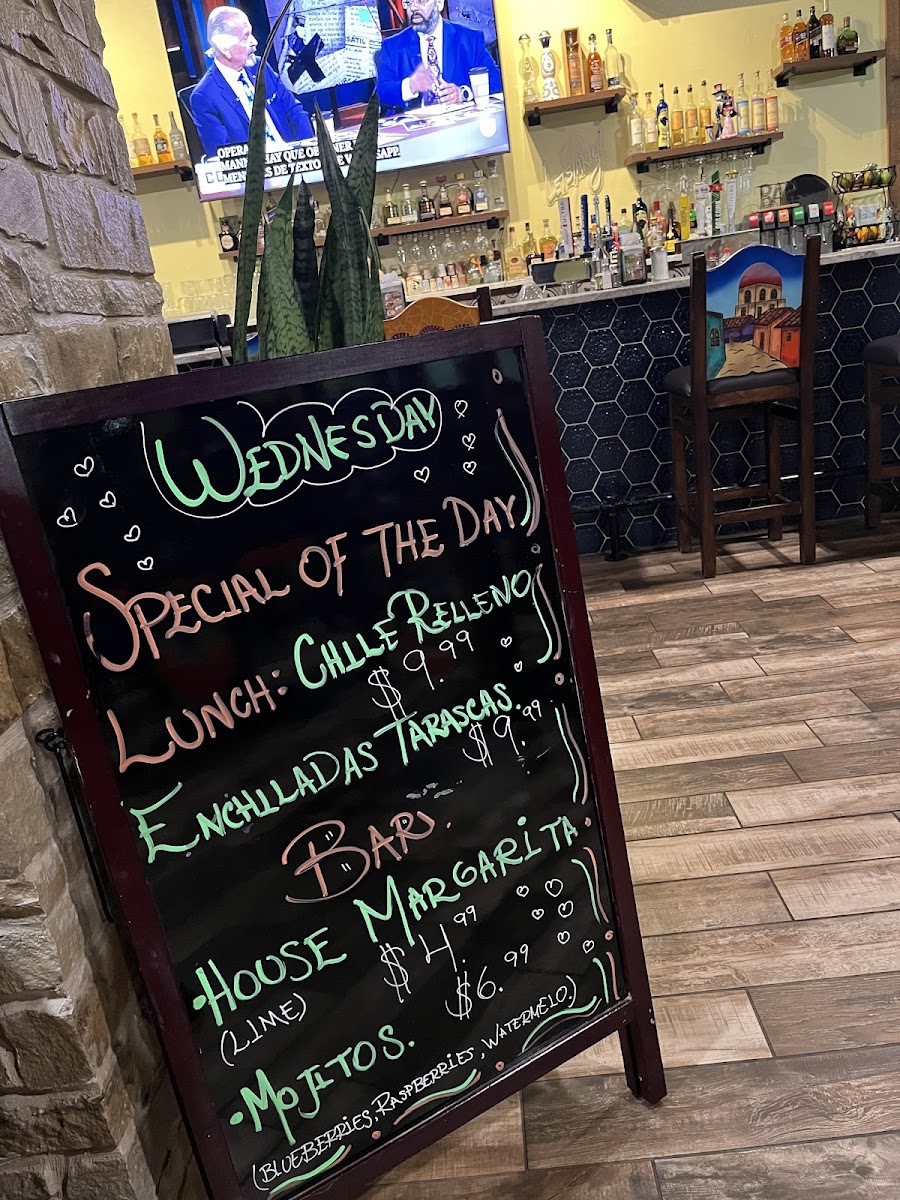 SÁTIL
OPERA
MANNI HAY QUE OB
MENSAJES DE TEXTO DE WHATSAPP
WEDNESDAY
SPECIAL OF THE DAY
LUNCH: CHILE RELLENO
$9.99
ENCHILADAS TARASCAS.
$9.99
BAR.
•HOUSE MARGARITA
(LIME) $4.99
•MOJITOS. $6.99
(BLUEBERRIES, RASPBERRIES, WATERMELO.)